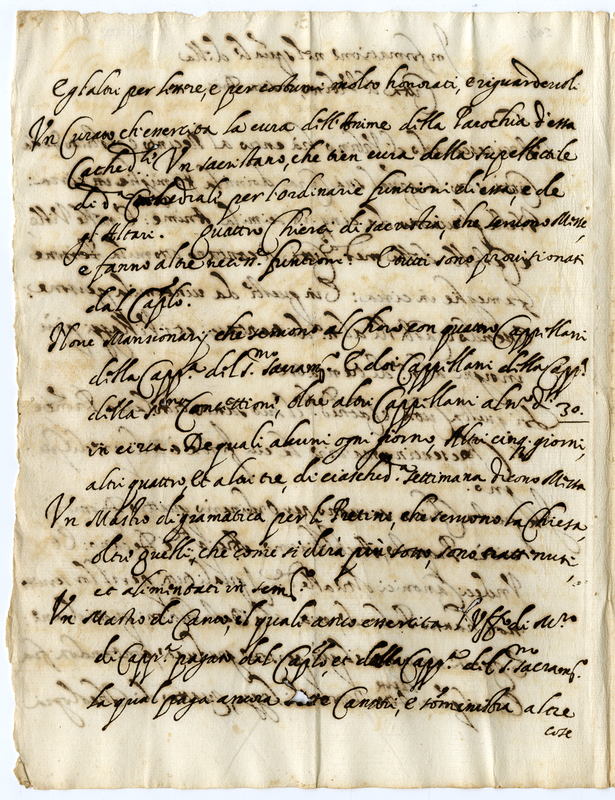 E gl'altri per lettere, e per costumi molto honorati, e riguardevoli
Un Curato ch'essercita la cura dell'Anime della Parochia d'essa
Cathed.le Un sacristano, che tien cura della supellectile
di d.a Cathedrali per l'ordinarie funtioni di essa, e de
gl'Altari. Quattro Chierci di sacrestia, che servono Messe,
e fanno altre necess.e funtioni. Tutti sono provisionati
dal Cap.lo.
None Mansionarij che servono al Choro con quattro Cappellani
della Capp.a del S.mo Sacram.to E doi Cappellani della Capp.a
della S.ma Concettione, oltre altri Cappellani al n.o d. 30.
in circa. De quali alcuni ogni giorno, Altri cinq. giorni,
altri quattro, et altri tre, di ciasched.a settimana dicono Messa
Un Mastro di gramatica per li Pretini, che servono la Chiesa,
oltre quelli, che come si dirà più sotto, sono trattenuti,
et alimentati in sem.o
Un Mastro de Canto, il quale anco essercita l'Uff.o di M.ro
di Capp.a pagato dal Cap.lo, et della Capp.a del S.mo Sacram.to
la qual paga ancora Cantori, e somministra altre
cose